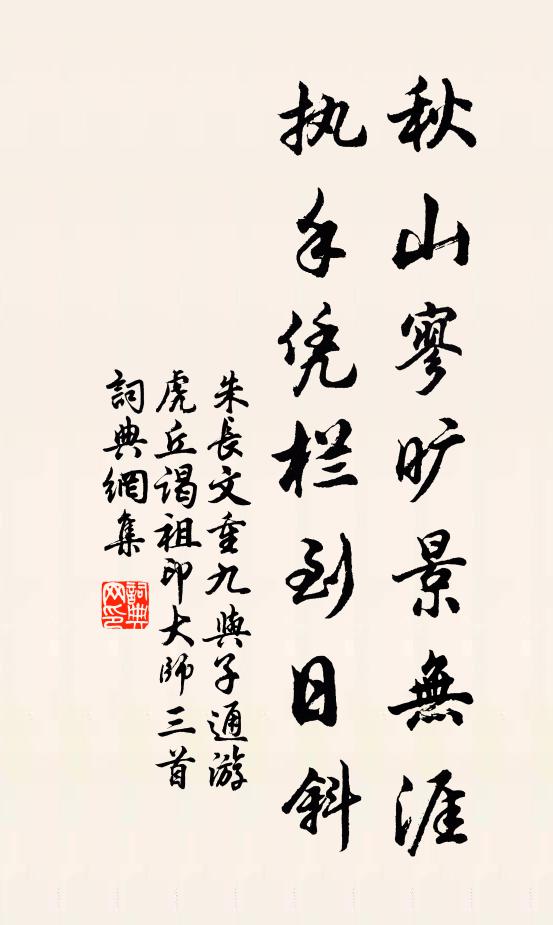 秋山寥旷景無涯
执手凭栏到日斜
朱長文重九與子通游
虎丘谒祖印大师三首
詞典網集
詞典网印